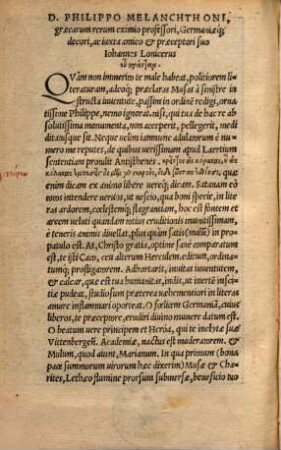 D. PHILIPPO MELANCHTHONI,
græcarum rerum eximio professori, Germaniæq;
decori, ac iuxta amico & præceptori suo
Iohannes Lonicerus
εὖ πράττειν.
QVàm non immerito te male habeat, politiorem li
teraturam, adeoq; præclaras Musas à sinistre in
structa iuuentute, passim in ordinē redigi, orna
tissime Philippe, nemo ignorat. nisi, qui tua de hac re ab
solutissima monumenta, non acceperit, pellegerit, medi
ditansque sit. Neque velim iammunc adulatorum è nume
ro me reputes, de quibus uerissimam apud Laertium
sententiam prodit Antisthenes .
enim dicam ex animo libere uereq; dicam. Satanam eò
neruos intendere uerulos, ut nescio, qua boni specie, in li=
teras ardorem, cœlestemq; flagrantiam, hoc est mitem et
auream uelati quandam natur eruditionis munitissimam,
è teneris enenis diuellat, plus quàm satis in pro=
patulo est. At, Christo gratia, optime sane comparatum
est, te isti Caco, ceu alterum Herculem. editum, ordina=
tumq; profliganrem. Adhortaris, inuitas iuuentutem,
& calcar, quæ est tua humanitas, indis, ut inertē insci=
tiæ pudeat, studiosum præterea uehementiori in literas
amore inflammari oporteat. O fœlicem Germaniā, cuius
liberos, te præceptore, erudiri diuino munere datum est.
O beatum uere principem et Heróa, qui te inclytæ suæ
Vittenbergeñ. Academiæ, nactus est moderatorem. &
Mulum, quod aiunt, Marianum. In qua primum (bona
pace summorum uirorum hæc dixerim) Musæ & Cha
rites, Lethæo flumine prorsum submersæ, beneficio tuo